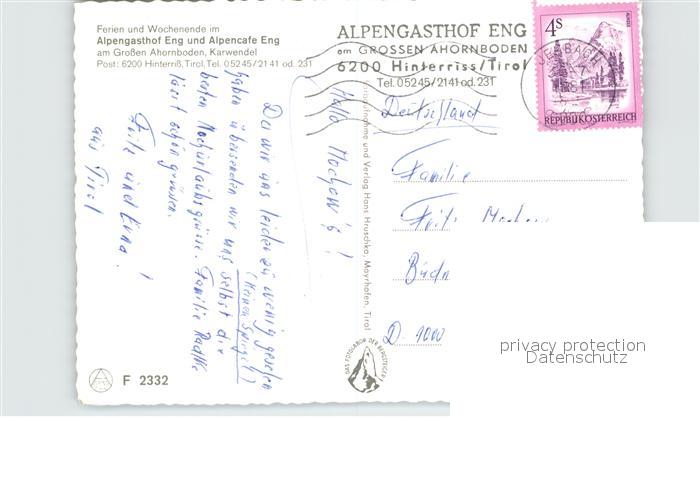 Ferien und Wochenende im
Alpengasthof Eng und Alpencafe Eng
am Großen Ahornboden, Karwendel
Post: 6200 Hinterriß, Tirol, Tel. 05245/2141 od. 231
ALPENGASTHOF ENG
am GROSSEN AHORNBODEN
6200 Hinterriss/Tirol
Tel. 05245/2141 od. 231
4S
REPUBLIK ÖSTERREICH
JENBACH
Hallo Mochow's!
Da wir uns leider zu wenig gesehen
(keinen Spiegel)
haben übersenden wir uns selbst die
besten Urlaubsgrüsse. Familie Radtke
lässt schön grüssen.
Fritz und Erna!
aus Tirol
Deutschland
Familie
Fritz Mochow
D-1000
und Verlag Hans Hruschka, Mayrhofen, Tirol
DAS FOTOLABOR DER BERGSTEIGER
F 2332
privacy protection
Datenschutz